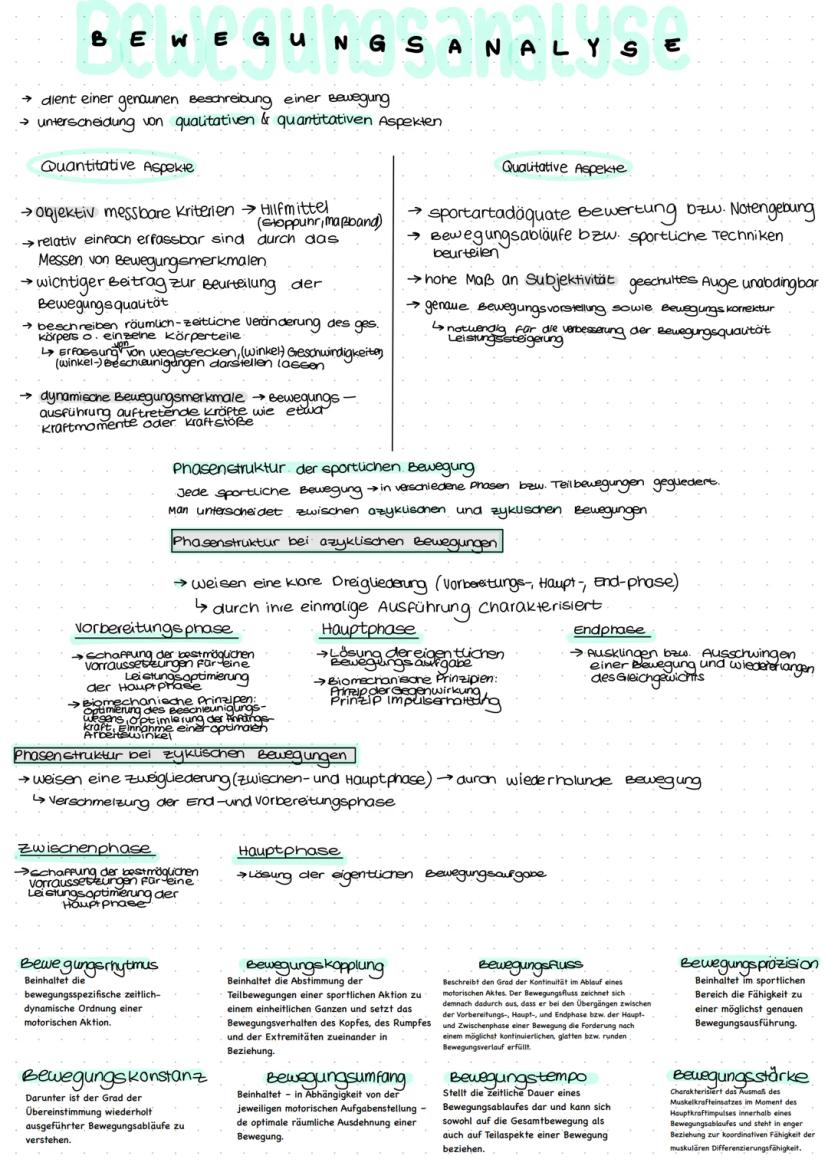 Bewegungsanalyse
BEWEGUNGSANALYSE
→ dient einer genaunen Beschreibung einer Bewegung
→ unterscheidung von qualitativen & quantitativen Aspekten
Quantitative Aspekte
→ objektiv messbare Kriterien → Hilfmittel
(Stoppuhr, maßband)
→ relativ einfach erfassbar sind durch das
Messen von Bewegungsmerkmalen
→ wichtiger Beitrag zur Beurteilung der
Bewegungsqualität
→ beschreiben räumlich-zeitliche Veränderung des ges.
körpers o. einzelne Körperteile
von
↳ Erfassung von wegstrecken, (winkel-) Geschwindigkeiten,
(winkel-) Beschleunigungen darstellen lassen
→ dynamische Bewegungsmerkmale → Bewegungs-
ausführung auftretende Kräfte wie etwa
Kraftmomente oder Kraftstöße
Qualitative Aspekte
→ sportartadäquate Bewertung bzw. Notengebung
→ Bewegungsabläufe bzw. sportliche Techniken
beurteilen
→ hohe Maß an Subjektivität geschultes Auge unabdingbar
→ genaue Bewegungsvorstellung sowie Bewegungskorrektur
↳ notwendig für die verbesserung der Bewegungsqualität
Leistungssteigerung
Phasenstruktur der sportlichen Bewegung
Jede sportliche Bewegung → in verschiedene Phasen bzw. Teilbewegungen gegliedert.
Man unterscheidet zwischen azyklischen und zyklischen Bewegungen
Phasenstruktur bei azyklischen Bewegungen
→ weisen eine klare Dreigliederung (Vorbereitungs-, Haupt-, End-phase)
↳ durch ihre einmalige Ausführung Charakterisiert
Vorbereitungsphase
→ Schaffung der bestmöglichen
Vorraussetzungen für eine
Leistungsoptimierung
der Hauptphase
→ Biomechanische Prinzipen:
Optimierung des Beschleunigungs-
weges, Optimierung der Anfangs-
kraft, Einnahme einer optimalen
Arbeitswinkel
Hauptphase
→ Lösung der eigentlichen
Bewegungsaufgabe
→ Biomechanische Prinzipien:
Prinzip der Gegenwirkung,
Prinzip Impulserhaltung
Endphase
→ Ausklingen bzw. Ausschwingen
einer Bewegung und wiedererlangen
des Gleichgewichts
Phasenstruktur bei zyklischen Bewegungen
→ weisen eine zweigliederung (zwischen- und Hauptphase) → durch wiederholunde Bewegung
↳ Verschmelzung der End-und Vorbereitungsphase
Zwischenphase
→ Schaffung der bestmöglichen
Vorraussetzungen für eine
Leistungsoptimierung der
Hauptphase
Hauptphase
→ Lösung der eigentlichen Bewegungsaufgabe
Bewegungsrhytmus
Beinhaltet die
bewegungsspezifische zeitlich-
dynamische Ordnung einer
motorischen Aktion.
Bewegungskopplung
Beinhaltet die Abstimmung der
Teilbewegungen einer sportlichen Aktion zu
einem einheitlichen Ganzen und setzt das
Bewegungsverhalten des Kopfes, des Rumpfes
und der Extremitäten zueinander in
Beziehung.
Bewegungsfluss
Beschreibt den Grad der Kontinuität im Ablauf eines
motorischen Aktes. Der Bewegungsfluss zeichnet sich
demnach dadurch aus, dass er bei den Übergängen zwischen
der Vorbereitungs-, Haupt-, und Endphase bzw. der Haupt-
und Zwischenphase einer Bewegung die Forderung nach
einem möglichst kontinuierlichen, glatten bzw. runden
Bewegungsverlauf erfüllt.
Bewegungspräzision
Beinhaltet im sportlichen
Bereich die Fähigkeit zu
einer möglichst genauen
Bewegungsausführung.
Bewegungskonstanz
Darunter ist der Grad der
Übereinstimmung wiederholt
ausgeführter Bewegungsabläufe zu
verstehen.
Bewegungsumfang
Beinhaltet – in Abhängigkeit von der
jeweiligen motorischen Aufgabenstellung –
de optimale räumliche Ausdehnung einer
Bewegung.
Bewegungstempo
Stellt die zeitliche Dauer eines
Bewegungsablaufes dar und kann sich
sowohl auf die Gesamtbewegung als
auch auf Teilaspekte einer Bewegung
beziehen.
Bewegungsstärke
Charakterisiert das Ausmaß des
Muskelkrafteinsatzes im Moment des
Hauptkraftimpulses innerhalb eines
Bewegungsablaufes und steht in enger
Beziehung zur koordinativen Fähigkeit der
muskulären Differenzierungsfähigkeit.